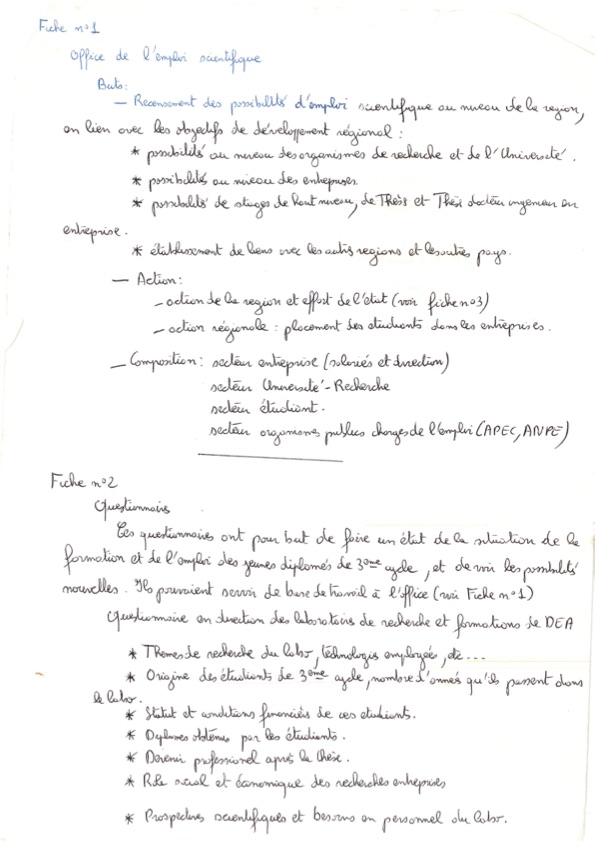 Fiche n°1
Office de l'emploi scientifique
Buts:
— Recensement des possibilités d'emploi scientifique au niveau de la region,
en lien avec les objectifs de développement régional :
* possibilités au niveau des organismes de recherche et de l'Université.
* possibilités au niveau des entreprises.
* possibilités de stages de haut niveau, de Thèse et Thèse docteur ingenieur en
entreprise.
* établissement de liens avec les autres regions et les autres pays.
— Action:
- action de la region et effort de l'état (voir fiche n°3)
- action régionale : placement des étudiants dans les entreprises.
— Composition: secteur entreprise (salariés et direction)
secteur Université - Recherche
secteur étudiant.
secteur organismes publics charges de l'emploi (APEC, ANPE)
Fiche n°2
Questionnaires
Ces questionnaires ont pour but de faire un état de la situation de la
formation et de l'emploi des jeunes diplomés de 3eme cycle, et de voir les possibilités
nouvelles. Ils pouvaient servir de base de travail à l'office (voir Fiche n°1)
Questionnaire en direction des laboratoires de recherche et formations de DEA
* Themes de recherche du labo, technologies employées, etc...
* Origine des étudiants de 3eme cycle, nombre d'années qu'ils passent dans
le labo.
* Statut et conditions financières de ces etudiants.
* Diplomes obtenus par les étudiants.
* Devenir professionel après la thèse.
* Rôle social et économique des recherches entreprises
* Prospectives scientifiques et besoins en personnel du labo.